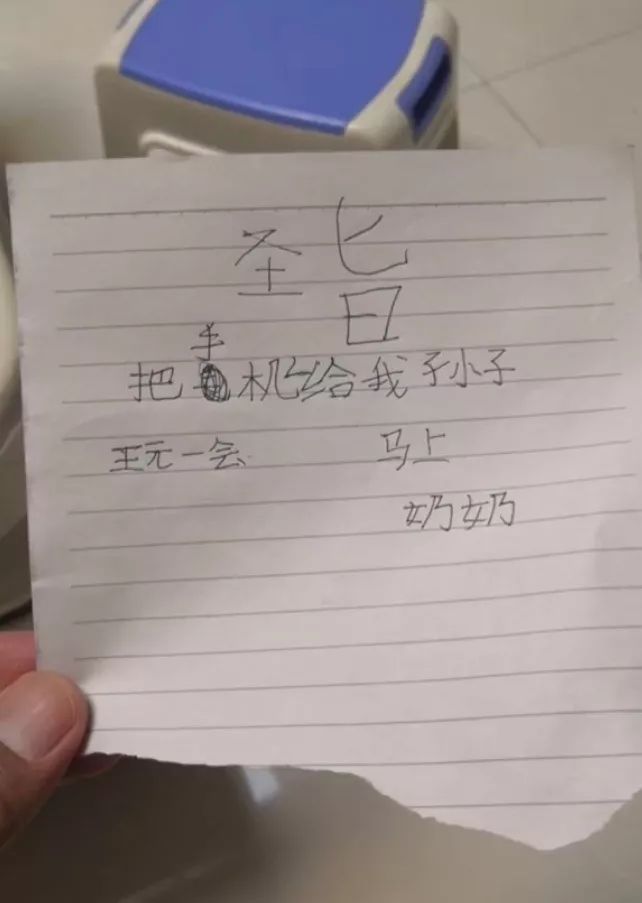 圣旨
把手机给我孙子
王元一会
马上
奶奶